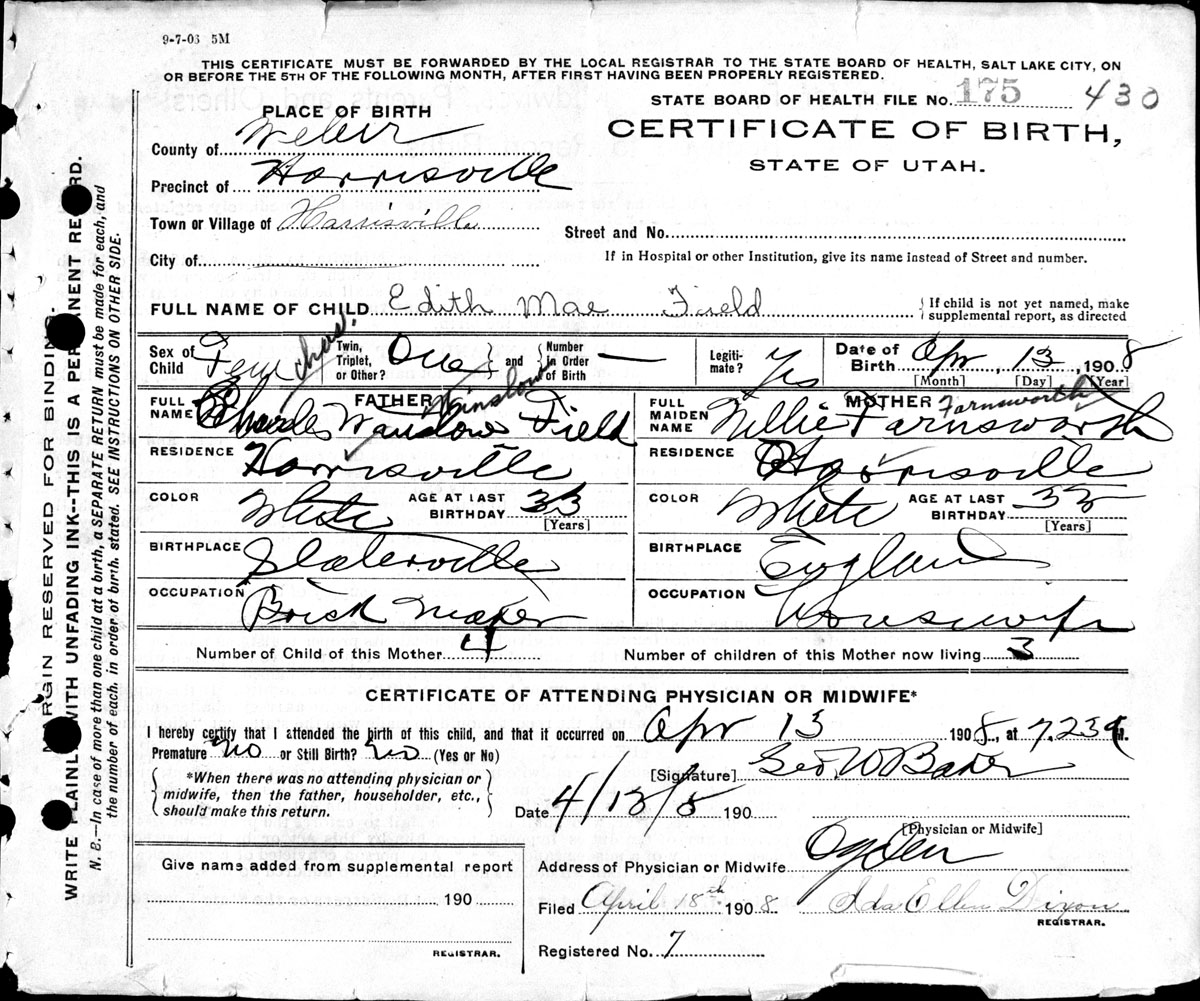 9-7-03 5M
THIS CERTIFICATE MUST BE FORWARDED BY THE LOCAL REGISTRAR TO THE STATE BOARD OF HEALTH, SALT LAKE CITY, ON
OR BEFORE THE 5TH OF THE FOLLOWING MONTH, AFTER FIRST HAVING BEEN PROPERLY REGISTERED.
STATE BOARD OF HEALTH FILE No. 175 430
PLACE OF BIRTH
CERTIFICATE OF BIRTH,
STATE OF UTAH.
County of Weber
Precinct of Harrisville
Town or Village of Harrisville
Street and No.
City of
If in Hospital or other Institution, give its name instead of Street and number.
FULL NAME OF CHILD Edith Mae Field
{ If child is not yet named, make
supplemental report, as directed
Sex of Child Fem
Twin, Triplet, or Other? One } and { Number in Order of Birth —
Legiti-mate? Yes
Date of Birth Apr, 13, 1908
[Month] [Day] [Year]
chas.
FATHER Winslow
FULL NAME Charles Winslow Field
MOTHER Farnsworth
FULL MAIDEN NAME Nellie Farnsworth
RESIDENCE Harrisville
RESIDENCE Harrisville
COLOR White AGE AT LAST BIRTHDAY 33 [Years]
COLOR White AGE AT LAST BIRTHDAY 33 [Years]
BIRTHPLACE Slaterville
BIRTHPLACE England
OCCUPATION Brick Maker
OCCUPATION Housewife
Number of Child of this Mother 4
Number of children of this Mother now living 3
CERTIFICATE OF ATTENDING PHYSICIAN OR MIDWIFE*
I hereby certify that I attended the birth of this child, and that it occurred on Apr 13 1908, at 7.23
Premature No or Still Birth? No (Yes or No)
*When there was no attending physician or
midwife, then the father, householder, etc.,
should make this return.
[Signature] Geo. W Baker
Date 4/13/8 190
[Physician or Midwife]
Address of Physician or Midwife Ogden
Give name added from supplemental report
190
REGISTRAR.
Filed April 18th 1908 Ida Ellen Dixon
REGISTRAR.
Registered No. 7
MARGIN RESERVED FOR BINDING.
WRITE PLAINLY WITH UNFADING INK--THIS IS A PERMANENT RECORD.
N. B.—In case of more than one child at a birth, a SEPARATE RETURN must be made for each, and
the number of each, in order of birth, stated. SEE INSTRUCTIONS ON OTHER SIDE.